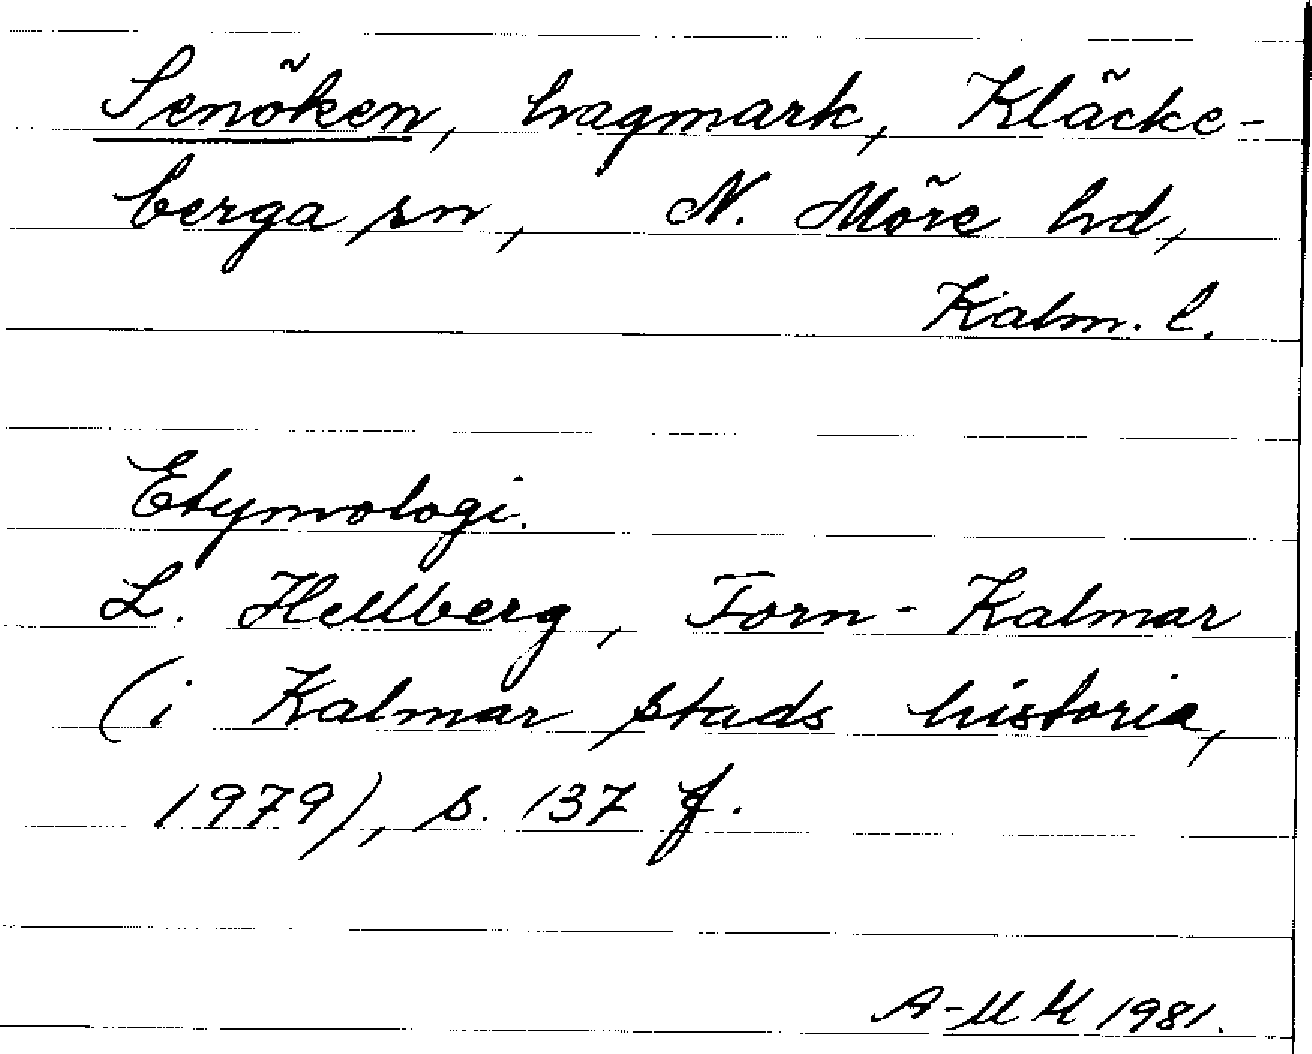 Senöken, hagmark, Kläcke-
berga sn, N. Möre hd,
Kalm. l.
Etymologi.
L. Hellberg, Forn-Kalmar
(i Kalmar stads historia,
1979), s. 137 f.
A-M H 1981.